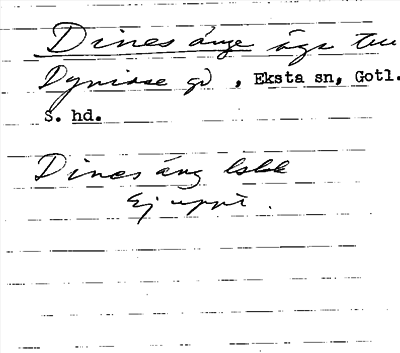 Dinesänge äga till
Dynisse gd, Eksta sn, Gotl.
S. hd.
Dinesäng lskk
Ej uppt.